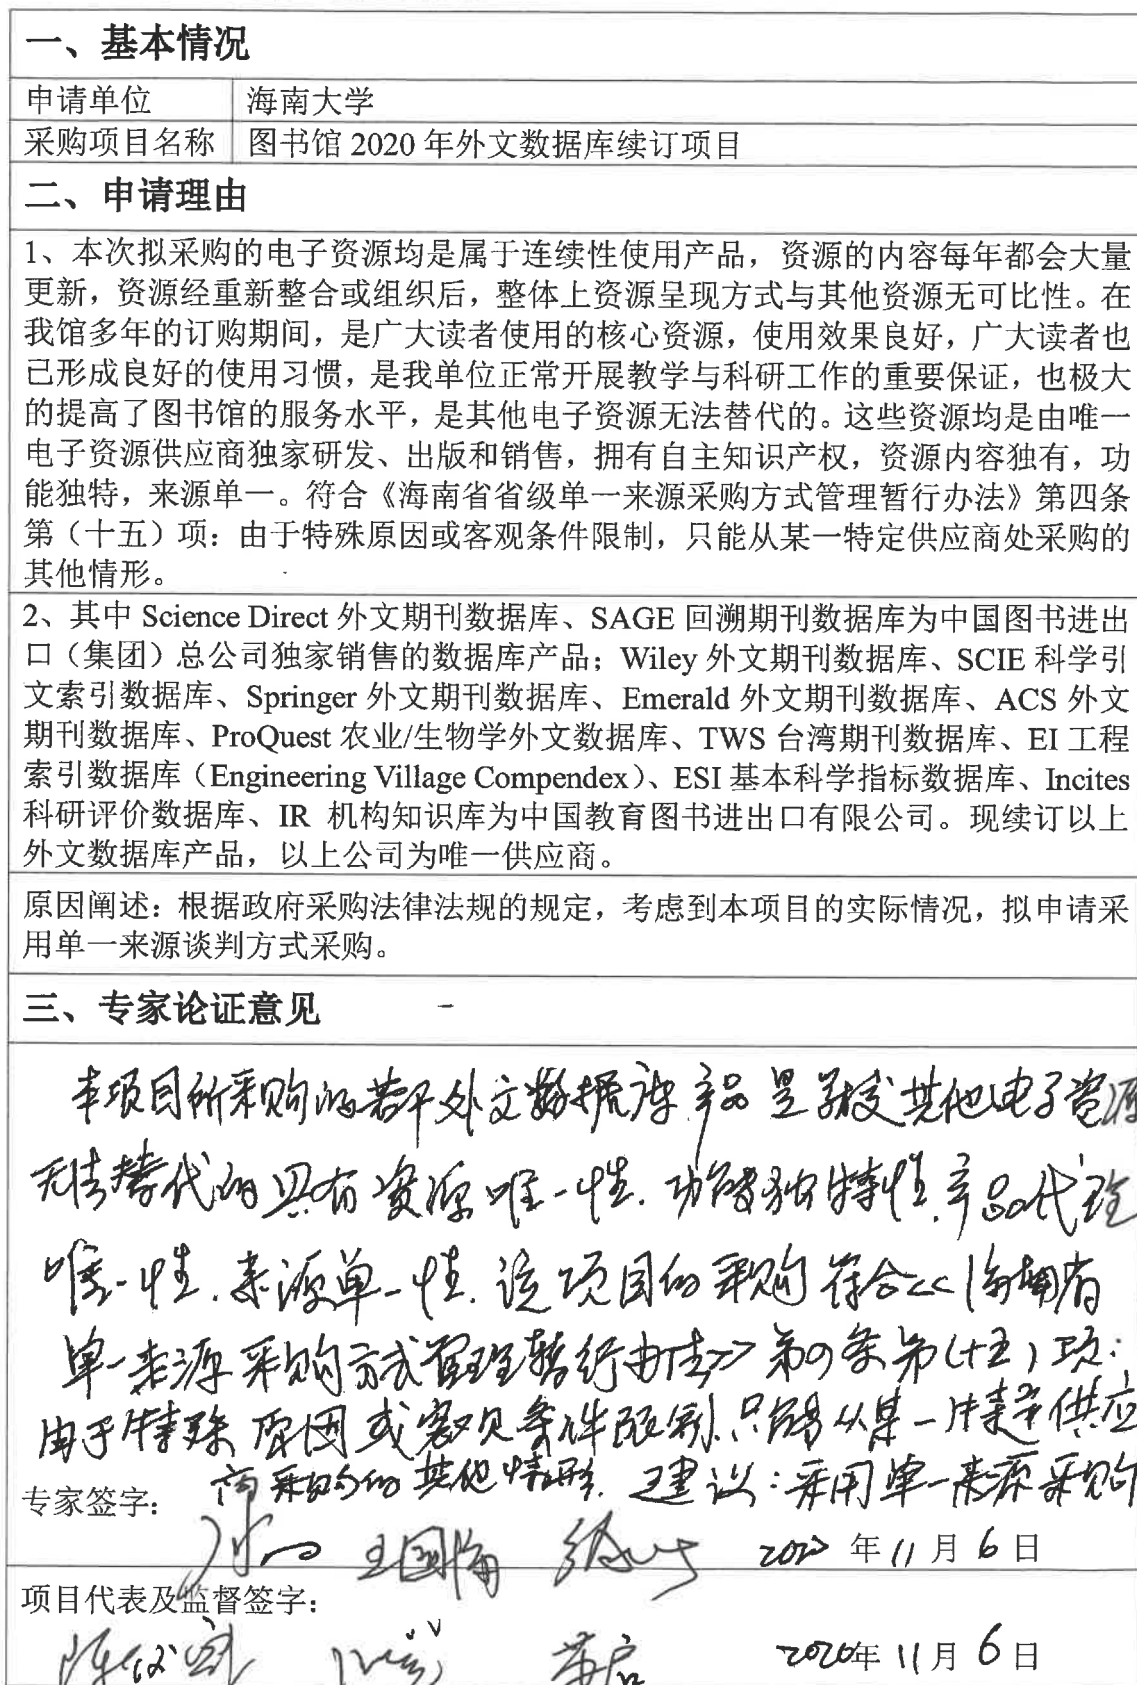 一、基本情况
申请单位 海南大学
采购项目名称 图书馆 2020 年外文数据库续订项目
二、申请理由
1、本次拟采购的电子资源均是属于连续性使用产品，资源的内容每年都会大量
更新，资源经重新整合或组织后，整体上资源呈现方式与其他资源无可比性。在
我馆多年的订购期间，是广大读者使用的核心资源，使用效果良好，广大读者也
已形成良好的使用习惯，是我单位正常开展教学与科研工作的重要保证，也极大
的提高了图书馆的服务水平，是其他电子资源无法替代的。这些资源均是由唯一
电子资源供应商独家研发、出版和销售，拥有自主知识产权，资源内容独有，功
能独特，来源单一。符合《海南省省级单一来源采购方式管理暂行办法》第四条
第（十五）项：由于特殊原因或客观条件限制，只能从某一特定供应商处采购的
其他情形。
2、其中 Science Direct 外文期刊数据库、SAGE 回溯期刊数据库为中国图书进出
口（集团）总公司独家销售的数据库产品；Wiley 外文期刊数据库、SCIE 科学引
文索引数据库、Springer 外文期刊数据库、Emerald 外文期刊数据库、ACS 外文
期刊数据库、ProQuest 农业/生物学外文数据库、TWS 台湾期刊数据库、EI 工程
索引数据库（Engineering Village Compendex）、ESI 基本科学指标数据库、Incites
科研评价数据库、IR 机构知识库为中国教育图书进出口有限公司。现续订以上
外文数据库产品，以上公司为唯一供应商。
原因阐述：根据政府采购法律法规的规定，考虑到本项目的实际情况，拟申请采
用单一来源谈判方式采购。
三、专家论证意见
本项目所采购的若干外文数据库产品是学校其他电子资源
无法替代的具有资源唯一性.功能独特性.产品代理
唯一性.来源单一性.该项目的采购符合<<海南省
单一来源采购方式管理暂行办法>>第四条第(十五)项:
由于特殊原因或客观条件限制.只能从某一特定供应
商采购的其他情形.建议:采用单一来源采购
专家签字：
王国海 2020 年 11 月 6 日
项目代表及监督签字：
2020年 11 月 6 日